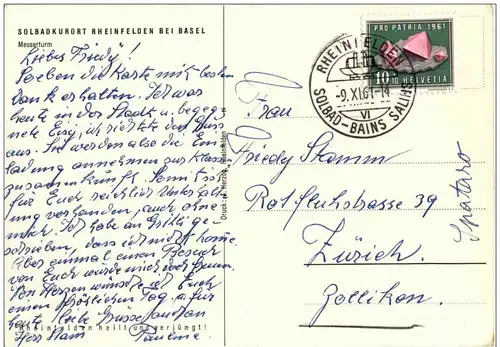 SOLBADKURORT RHEINFELDEN BEI BASEL
Messerturm
Liebes Friedy!
Soeben die Karte mit bestem
Dank erhalten. Ich war
heute in der Stadt u. begeg-
nete Eug, ich richtete den Gruss
aus. Sie werden also die Ein-
ladung annehmen zur Klassen
zusammenkunft. Somit ist
für Euch reichlich Unterhalt-
ung vorhanden, auch ohne
mich. Ich habe an Grittli ge-
schrieben, dass ich nicht komme.
Aber einmal einen Besuch
von Euch würde mich freuen.
Von Herzen wünsche ich Euch
einen fröhlichen Tag u. für
heute liebe Grüsse
Herr Stam Pauline
Rheinfelden heilt und verjüngt!
PRO PATRIA 1961
10+10 HELVETIA
RHEINFELDEN
-9.XI.61-14
VI
SOLBAD-BAINS SALINS
Frau
Friedy Stamm
Rotfluhstrasse 39
Zürich.
Zollikon.